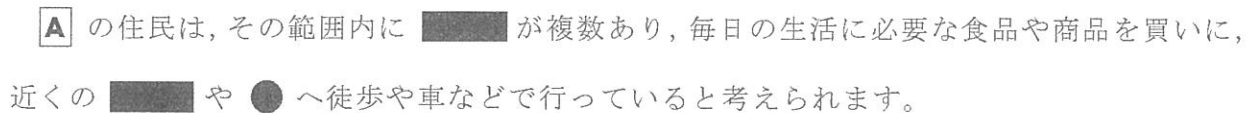 A の住民は，その範囲内に ■ が複数あり，毎日の生活に必要な食品や商品を買いに，
近くの ■ や ● へ徒歩や車などで行っていると考えられます。